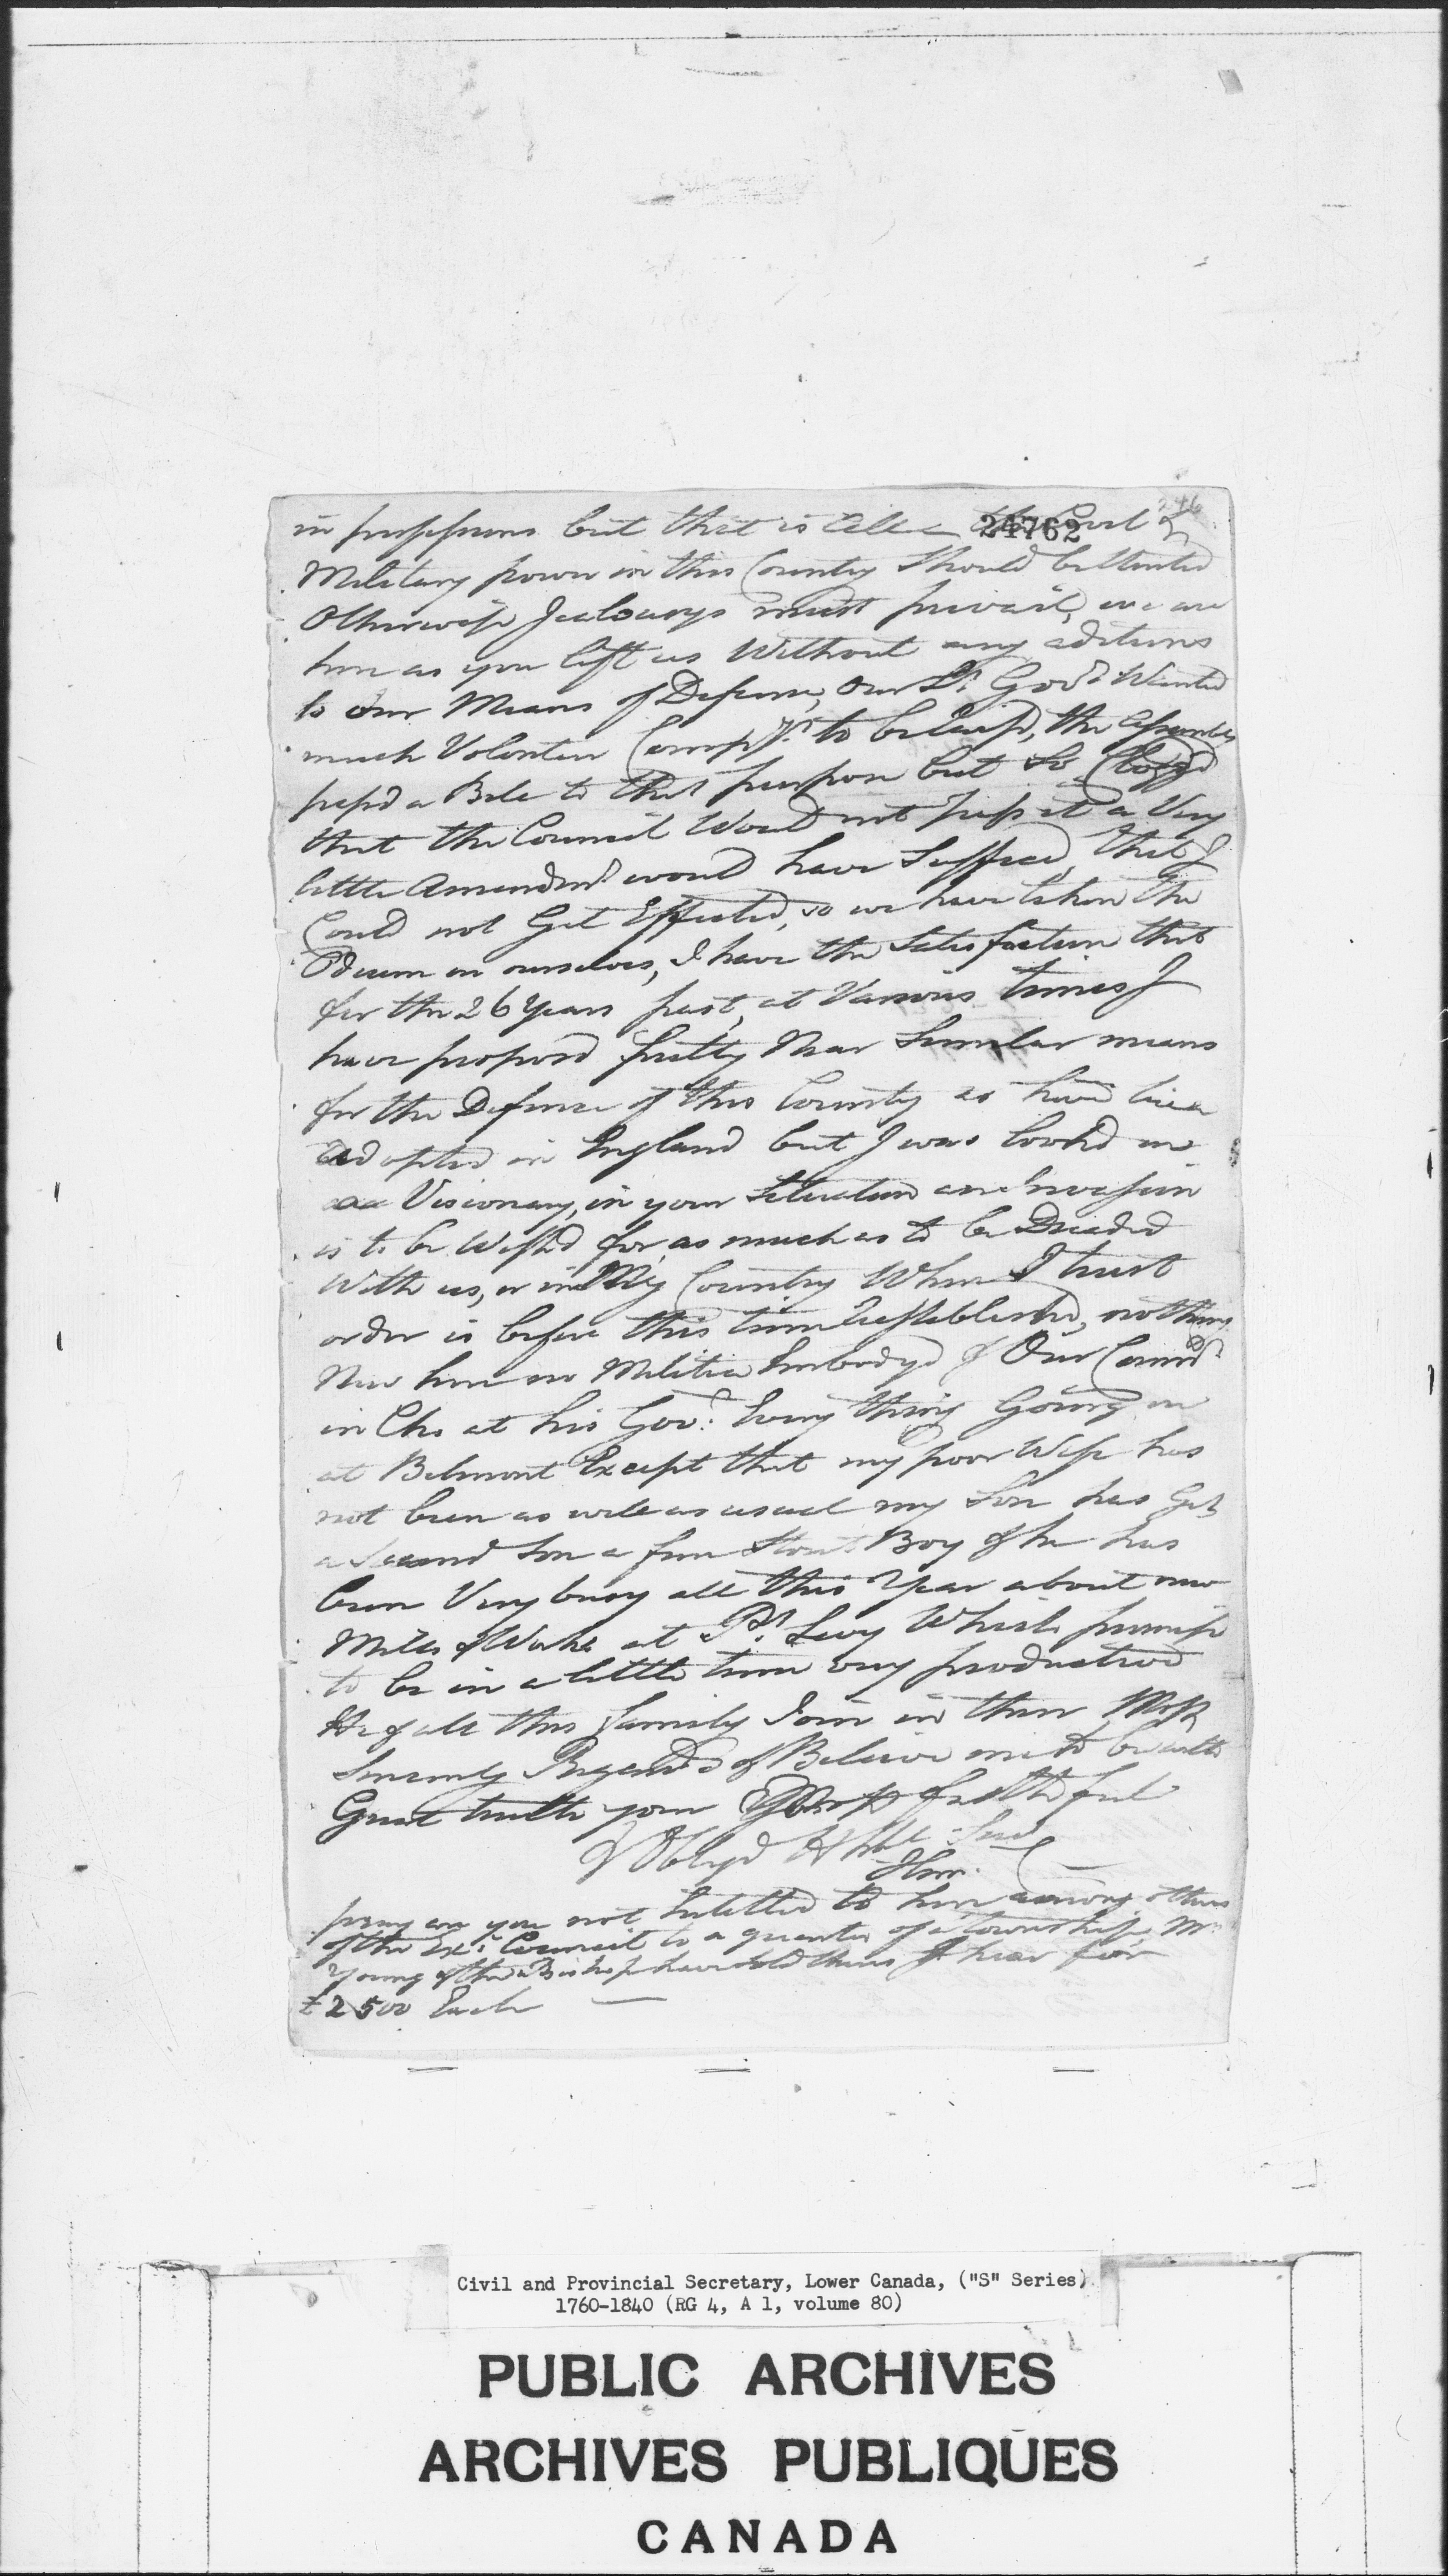 in professions but that is all a the Civil &
24762
246
Military power in this Country Should be United
Otherwise Jealousys must prevail, we are
here as you left us Without any aditions
to our Means of Defence, Our Lt. Govr. Wanted
much Volonteer Compys. to be Raisd, the Assembly
passd a Bile to that purpose but So Clogg'd
that the Council Would not pass it a Very
little Amendmt. would have Sufficed, that I
Could not Get Effected, so we have taken the
Odium on ourselves, I have the Satisfaction that
for the 26 Years past, at Various times I
have proposd pretty Near Similar means
for the Defence of this Country as have been
Adopted in England but I was look'd on
as Visionary, in your Situation an Invasion
is to be Wish'd for, as much as to be Dreaded
With us, or in My Country Where I trust
order is before this time Reestablished, nothing
New here no Militia Embody'd & Our Commdr.
in Che at his Gov. Every thing Going on
at Belmont Except that my poor Wife has
not been as well as usual my Son has Got
a Second Son a fine Stout Boy & he has
been Very busy all this Year about new
Mills & Works at Pt. Levy Which promise
to be in a little time very productive
He & all this family Join in their Most
Sincerely Regards & Believe me to be with
Great truth your Most faithful
& Oblig'd Hble Serv
pray are you not Intitled to here among others
of the Exe. Council to a quarter of a township, Mr.
Young & the Bishop have sold theirs I hear for
£2500 Each —
Civil and Provincial Secretary, Lower Canada, ("S" Series)
1760-1840 (RG 4, A 1, volume 80)
PUBLIC ARCHIVES
ARCHIVES PUBLIQUES
CANADA